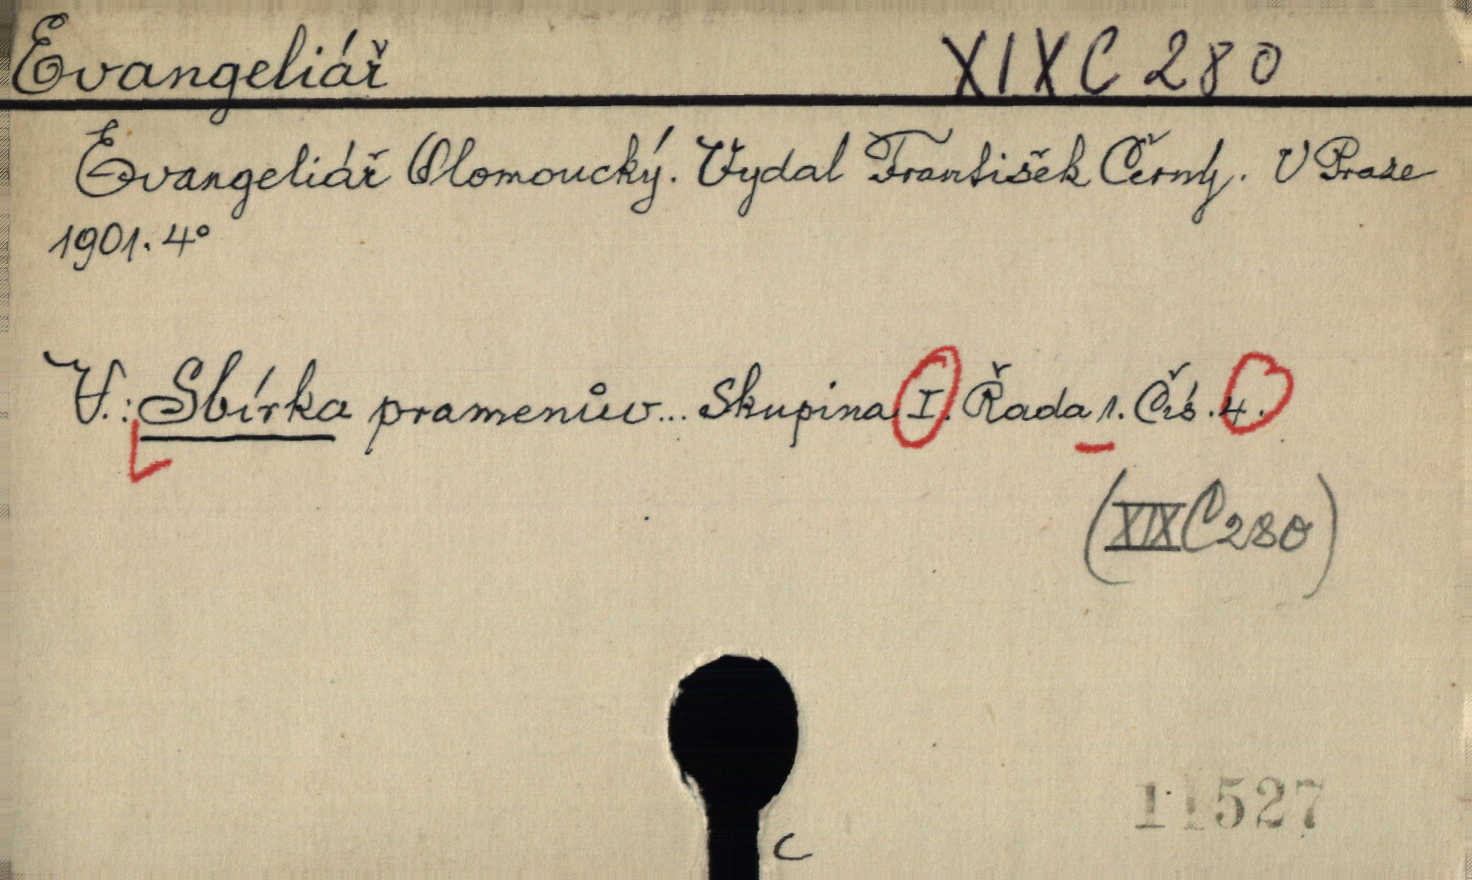 Evangeliář XIX C 280
Evangeliář Olomoucký. Vydal František Černý. V Praze
1901. 4°
V.: Sbírka pramenův... Skupina I. Řada 1. Čís. 4.
(XIX C 280)
11527
C